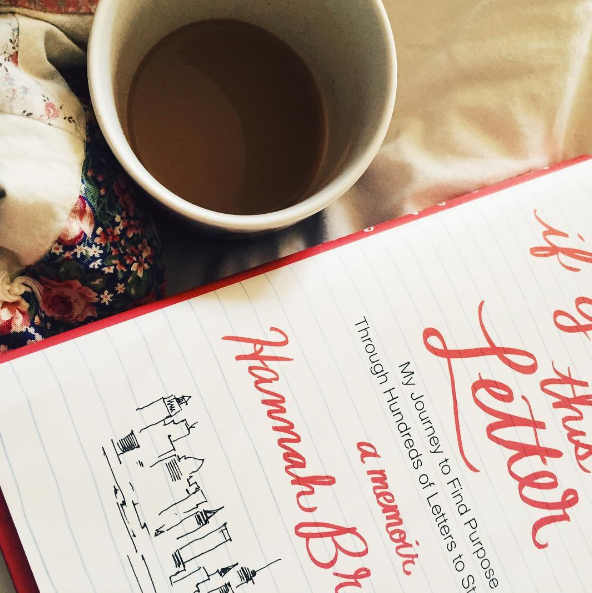 if y
this
Letter
My Journey to Find Purpose
Through Hundreds of Letters to St
a memoir
Hannah Br